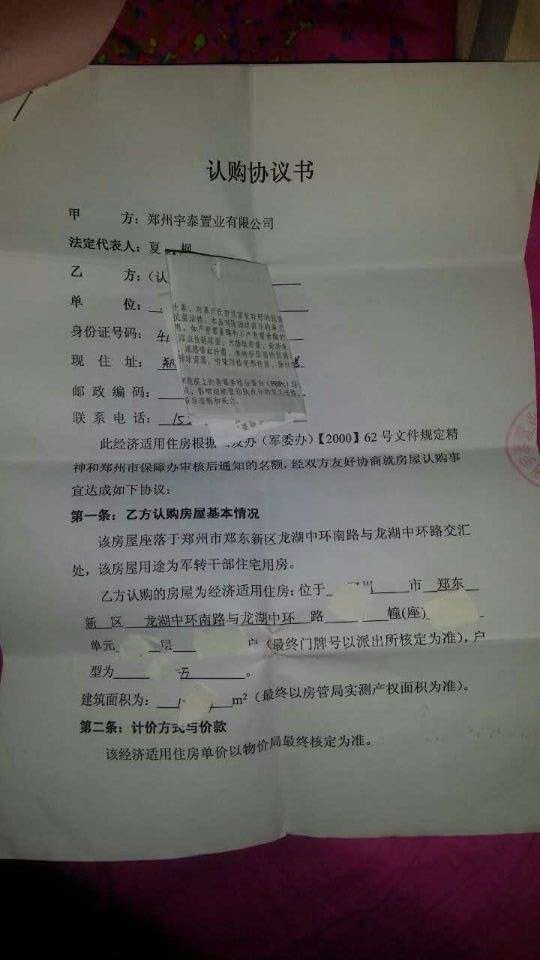 认购协议书
甲 方：郑州宇泰置业有限公司
法定代表人：夏
乙 方：（认
单 位：
身份证号码：4
现 住 址：郑
邮政编码：
联系电话：15
此经济适用住房根据 发办（军委办）【2000】62号文件规定精
神和郑州市保障办审核后通知的名额，经双方友好协商就房屋认购事
宜达成如下协议：
第一条：乙方认购房屋基本情况
该房屋座落于郑州市郑东新区龙湖中环南路与龙湖中环路交汇
处，该房屋用途为军转干部住宅用房。
乙方认购的房屋为经济适用住房；位于 市 郑东
新 区 龙湖中环南路与龙湖中环 路 幢(座)
单元 层 户（最终门牌号以派出所核定为准），户
型为 。
建筑面积为： m²（最终以房管局实测产权面积为准）。
第二条：计价方式与价款
该经济适用住房单价以物价局最终核定为准。